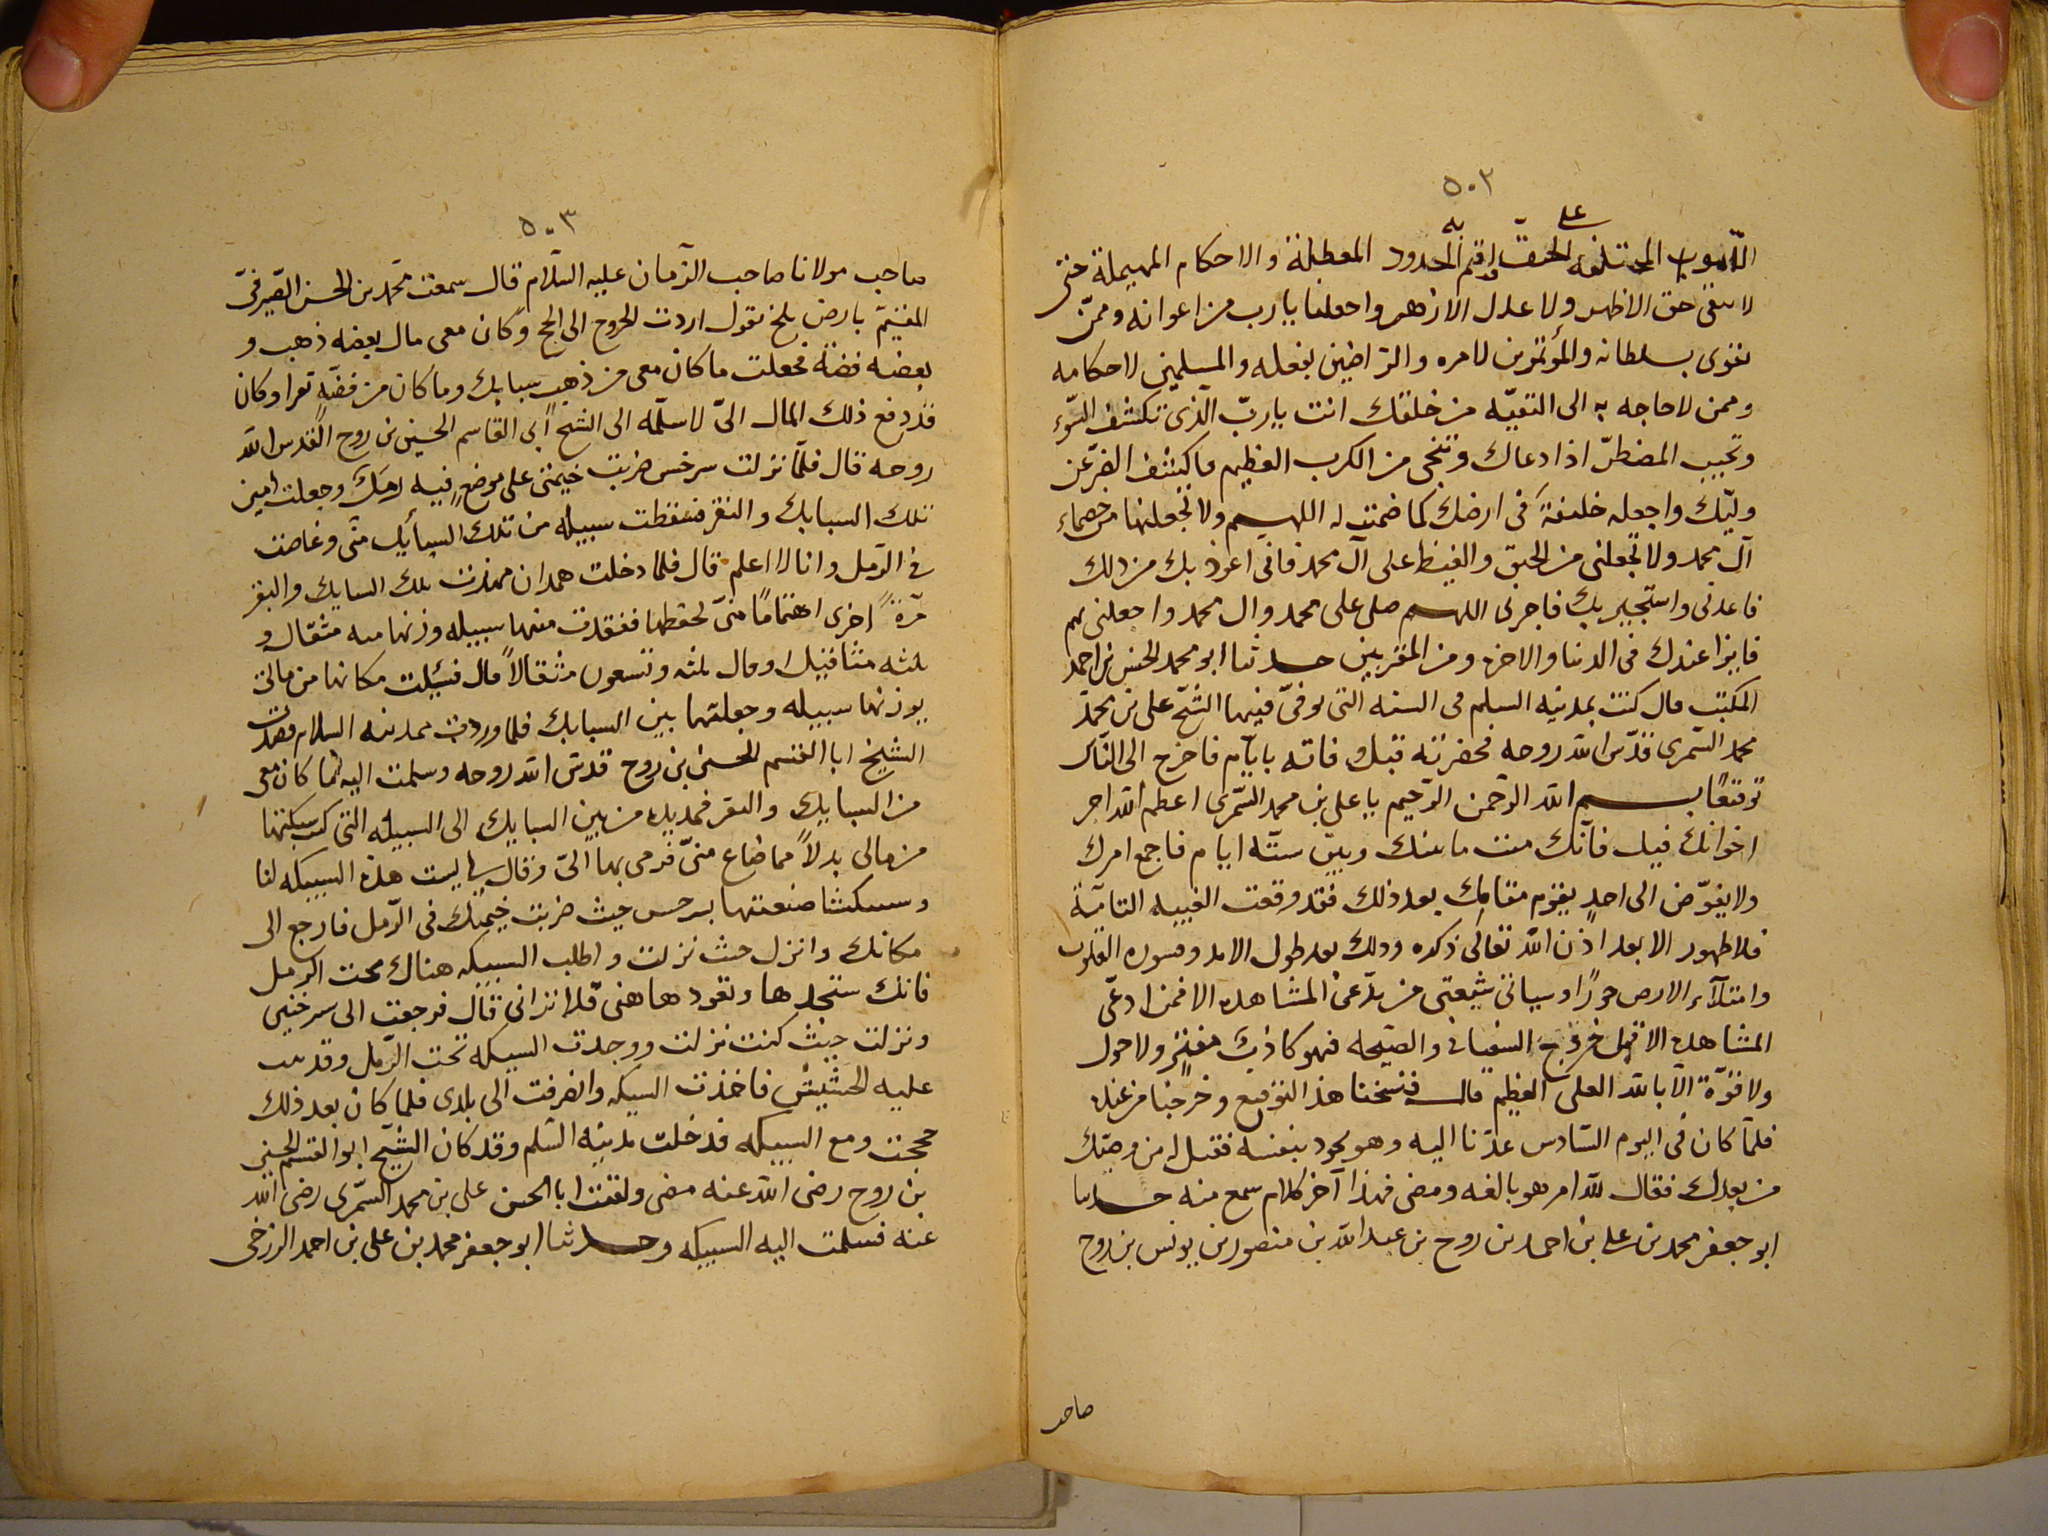 ٥٠٢
على به
القلوب المختلفه الحق واقم الحدود المعطلة والاحكام المهملة حتى
لا يبقى حق الا ظهر ولا عدل الا زهر واجعلنا يا رب من اعوانه وممن
يقوى بسلطانه والمؤتمرين لامره والراضين بفعله والمسلمين لاحكامه
وممن لا حاجه به الى التقيه من خلقك انت يا رب الذى تكشف السوء
وتجيب المضطر اذا دعاك وتنجى من الكرب العظيم فاكشف الضر عن
وليك واجعله خليفة فى ارضك كما ضمنت له اللهم ولا تجعلنى من خصماء
آل محمد ولا تجعلنى من الحنق والغيظ على آل محمد فانى اعوذ بك من ذلك
فاعذنى واستجير بك فاجرنى اللهم صلى على محمد وال محمد واجعلنى بهم
فايزا عندك فى الدنيا والاخره ومن المقربين حدثنا ابو محمد الحسن بن احمد
المكتب قال كنت بمدينه السلم فى السنه التى توفى فيها الشيخ على بن محمد
محمد السمرى قدس الله روحه فحضرته قبل وفاته بايام فاخرج الى الناس
توقيعا بسم الله الرحمن الرحيم يا على بن محمد السمرى اعظم الله اجر
اخوانك فيك فانك ميت ما بينك وبين ستة ايام فاجمع امرك
ولا يفوض الى احد يقوم مقامك بعد ذلك فقد وقعت الغيبه التامة
فلا ظهور الا بعد اذن الله تعالى ذكره وذلك بعد طول الامد وقسوه القلوب
وامتلآء الارض جورا وسياتى شيعتى من يدعى المشاهده الا فمن ادعى
المشاهده الا قبل خروج السفيانى والصيحه فهو كاذب مفتر ولا حول
ولا قوة الا بالله العلى العظيم قال فنسخنا هذا التوقيع وخرجنا من عنده
فلما كان فى اليوم السادس عدنا اليه وهو يجود بنفسه فقيل له من وصيك
من بعدك فقال لله امر هو بالغه ومضى فهذا آخر كلام سمع منه حدثنا
ابو جعفر محمد بن على بن احمد بن روح بن عبد الله بن منصور بن يونس بن روح
صاحب
٥٠٣
صاحب مولانا صاحب الزمان عليه السلام قال سمعت محمد بن الحسن الصيرفى
المقيم بارض بلخ يقول اردت الخروج الى الحج وكان معى مال بعضه ذهب و
بعضه فضة فجعلت ما كان معى من ذهب سبايك وما كان من فضة نقرا وكان
قد دفع ذلك المال الى لاسلمه الى الشيخ ابى القاسم الحسين بن روح القدس الله
روحه قال فلما نزلت سرخس ضربت خيمتى على موضع فيه رمل وجعلت امين
تلك السبايك والنقر فسقطت سبيكه من تلك السبايك منى وغاصت
فى الرمل وانا لا اعلم قال فلما دخلت همدان ميزت تلك السبايك والنقر
مرة اخرى اهتماما منى بحفظها ففقدت منها سبيكه وزنها مائه مثقال و
ثلثه مثاقيل او قال ثلثه وتسعون مثقالا قال فسبكت مكانها من مالى
بوزنها سبيكه وجعلتها بين السبايك فلما وردت مدينه السلام قصدت
الشيخ ابا القسم الحسين بن روح قدس الله روحه وسلمت اليه ما كان معى
من السبايك والنقر فمد يده من بين السبايك الى السبيكه التى كنت سبكتها
من مالى بدلا مما ضاع منى فرمى بها الى وقال لى ليست هذه السبيكه لنا
وسبيكتنا ضيعتها بسرخس حيث ضربت خيمتك فى الرمل فارجع الى
مكانك وانزل حيث نزلت واطلب السبيكه هناك تحت الرمل
فانك ستجدها وتعود هاهنى فلا ترانى قال فرجعت الى سرخس
ونزلت حيث كنت نزلت ووجدت السبيكه تحت الرمل وقد نبت
عليه الحشيش فاخذت السبيكه وانصرفت الى بلدى فلما كان بعد ذلك
حججت ومع السبيكه فدخلت مدينه السلم وقد كان الشيخ ابو القسم الحسين
بن روح رضى الله عنه مضى ولقيت ابا الحسن على بن محمد السمرى رضى الله
عنه فسلمت اليه السبيكه وحدثنا ابو جعفر محمد بن على بن احمد الزرخى